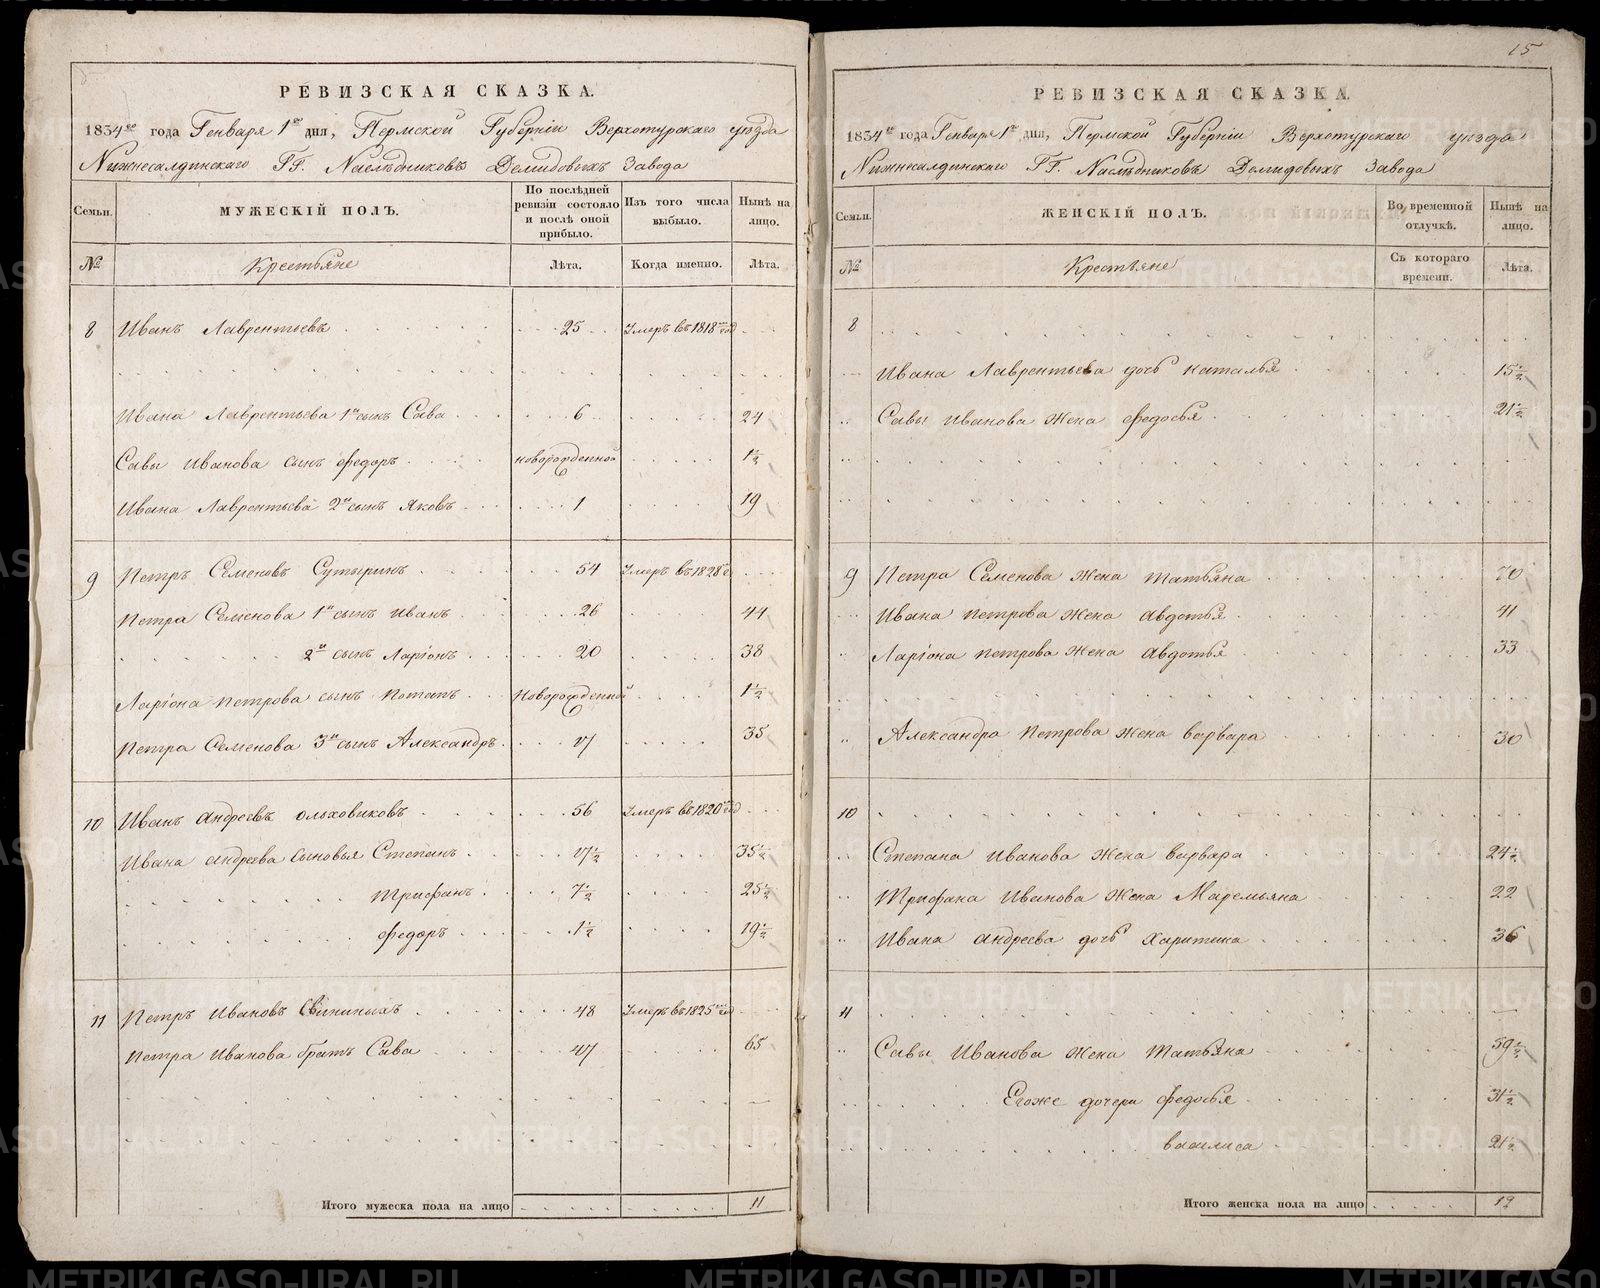 15
РЕВИЗСКАЯ СКАЗКА.
1834го года Генваря 1го дня, Пермской Губерніи Верхотурскаго уезда
Нижнесалдинскаго ГГ. Наслѣдниковъ Демидовыхъ Завода
Семьи.
МУЖЕСКІЙ ПОЛЪ.
По послѣдней ревизіи состояло и послѣ оной прибыло.
Изъ того числа выбыло.
Нынѣ на лицо.
№
Крестьяне
Лѣта.
Когда именно.
Лѣта.
8 Иванъ Лаврентьевъ 25 Умеръ въ 1818м год
Ивана Лаврентьева 1й сынъ Сава 6 24
Савы Иванова сынъ Федоръ новорожденной 1½
Ивана Лаврентьева 2й сынъ Яковъ 1 19
9 Петръ Семеновъ Сутыринъ 54 Умеръ въ 1828
Петра Семенова 1й сынъ Иванъ 26 44
2й сынъ Ларіонъ 20 38
Ларіона Петрова сынъ Потапъ Новорожденной 1½
Петра Семенова 3й сынъ Александръ 17 35
10 Иванъ Андреевъ Ольховиковъ 56 Умеръ въ 1820м год
Ивана Андреева сыновья Степанъ 17½ 35½
Трифанъ 7½ 25½
Федоръ 1½ 19½
11 Петръ Ивановъ Свининыхъ 48 Умеръ въ 1825м год
Петра Иванова братъ Сава 47 65
Итого мужеска пола на лицо 11
РЕВИЗСКАЯ СКАЗКА.
1834го года Генваря 1го дня, Пермской Губерніи Верхотурскаго уезда
Нижнесалдинскаго ГГ. Наслѣдниковъ Демидовыхъ Завода
Семьи.
ЖЕНСКІЙ ПОЛЪ.
Во временной отлучкѣ.
Нынѣ на лицо.
№
Крестьяне
Съ котораго времени.
Лѣта.
8
Ивана Лаврентьева дочь Наталья 15½
Савы Иванова жена Федосья 21½
9 Петра Семенова жена Татьяна 70
Ивана Петрова жена Авдотья 41
Ларіона Петрова жена Авдотья 33
Александра Петрова жена Варвара 30
10
Степана Иванова жена Варвара 24½
Трифана Иванова жена Маремьяна 22
Ивана Андреева дочь Харитина 36
11
Савы Иванова жена Татьяна 59½
Егоже дочери Федосья 31½
Василиса 21½
Итого женска пола на лицо 12
METRIKI.GASO-URAL.RU